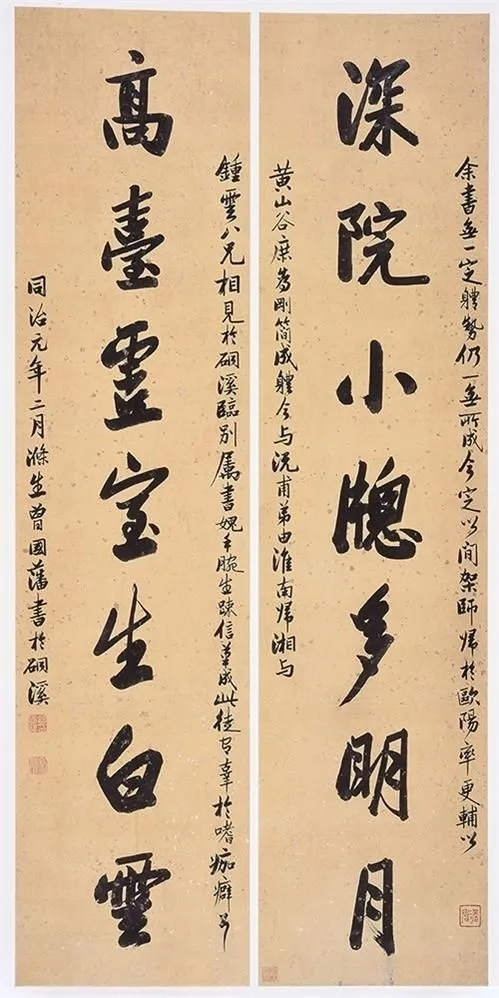 余書無一定體勢仍一無所成今定以間架師歸於歐陽率更輔以
深院小牕多明月
黃山谷庶為剛簡成體今与沅甫弟由淮南歸湘与
鍾雲八兄相見於硐溪臨別属書媿手腕生疎信筆成此徒有辜於嗜痂癖耳
高臺虛室生白雲
同治元年二月滌生曾國藩書於硐溪